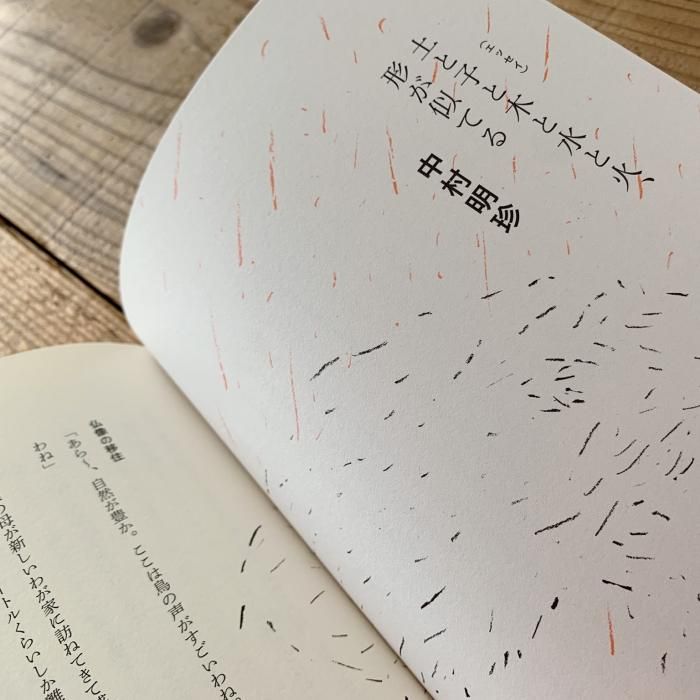 (エッセイ)
土と子と木と水と火、
形が似てる
中村明珍
仏像の移住
「あら〜、自然が豊か。ここは鳥の声がすごいわね
わね」
母が新しいわが家に訪ねてきて
トルくらいしか離